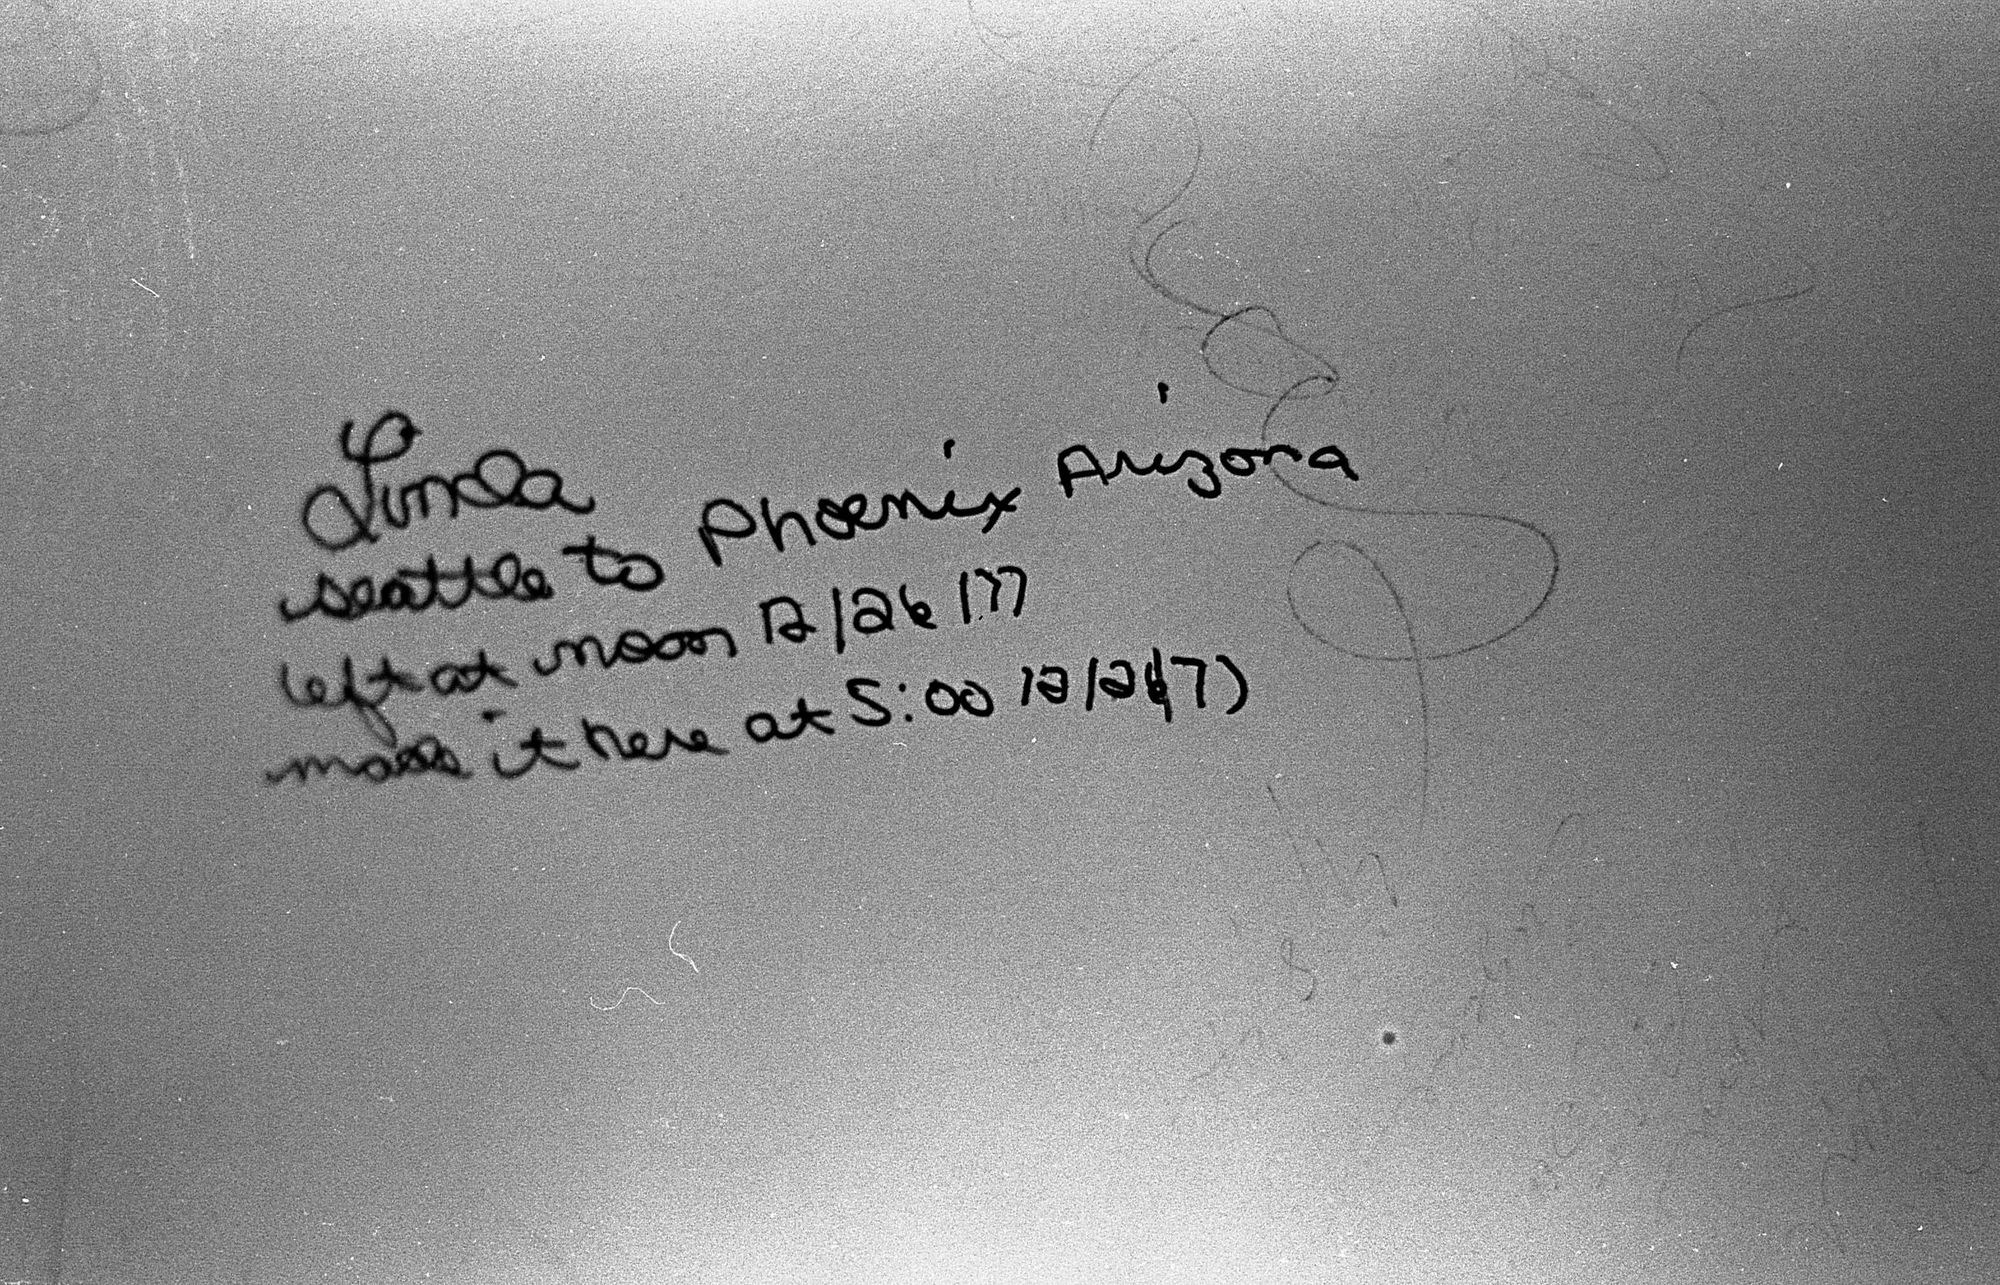 Linda
seattle to Phoenix Arizona
left at noon 12/26/77
made it here at 5:00 12/26/77